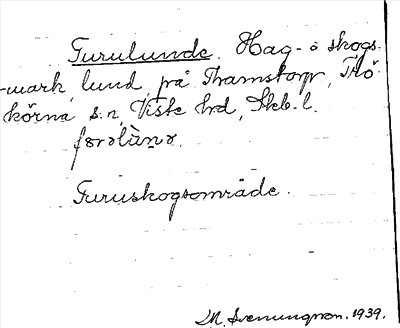 Furulunde. Hag- o skogs-
mark, lund, på Thamstorp, Trö-
körna s:n, Viste hd, Skb. l.
Furuskogsområde.
M. Svenungsson. 1939.